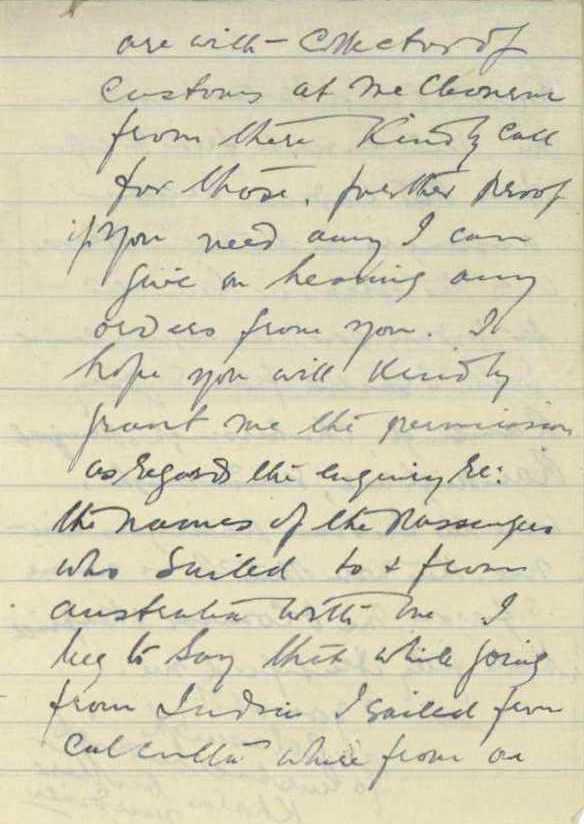 are with - Collector of
Customs at Melbourne
from there Kindly Call
for those. further proof
if you need any I can
give on hearing any
orders from you. I
hope you will Kindly
grant me the permission
as regards the enquiry re:
the names of the Passengers
who Sailed to & from
australia with me I
beg to Say that while going
from India I Sailed from
Calcutta where from an